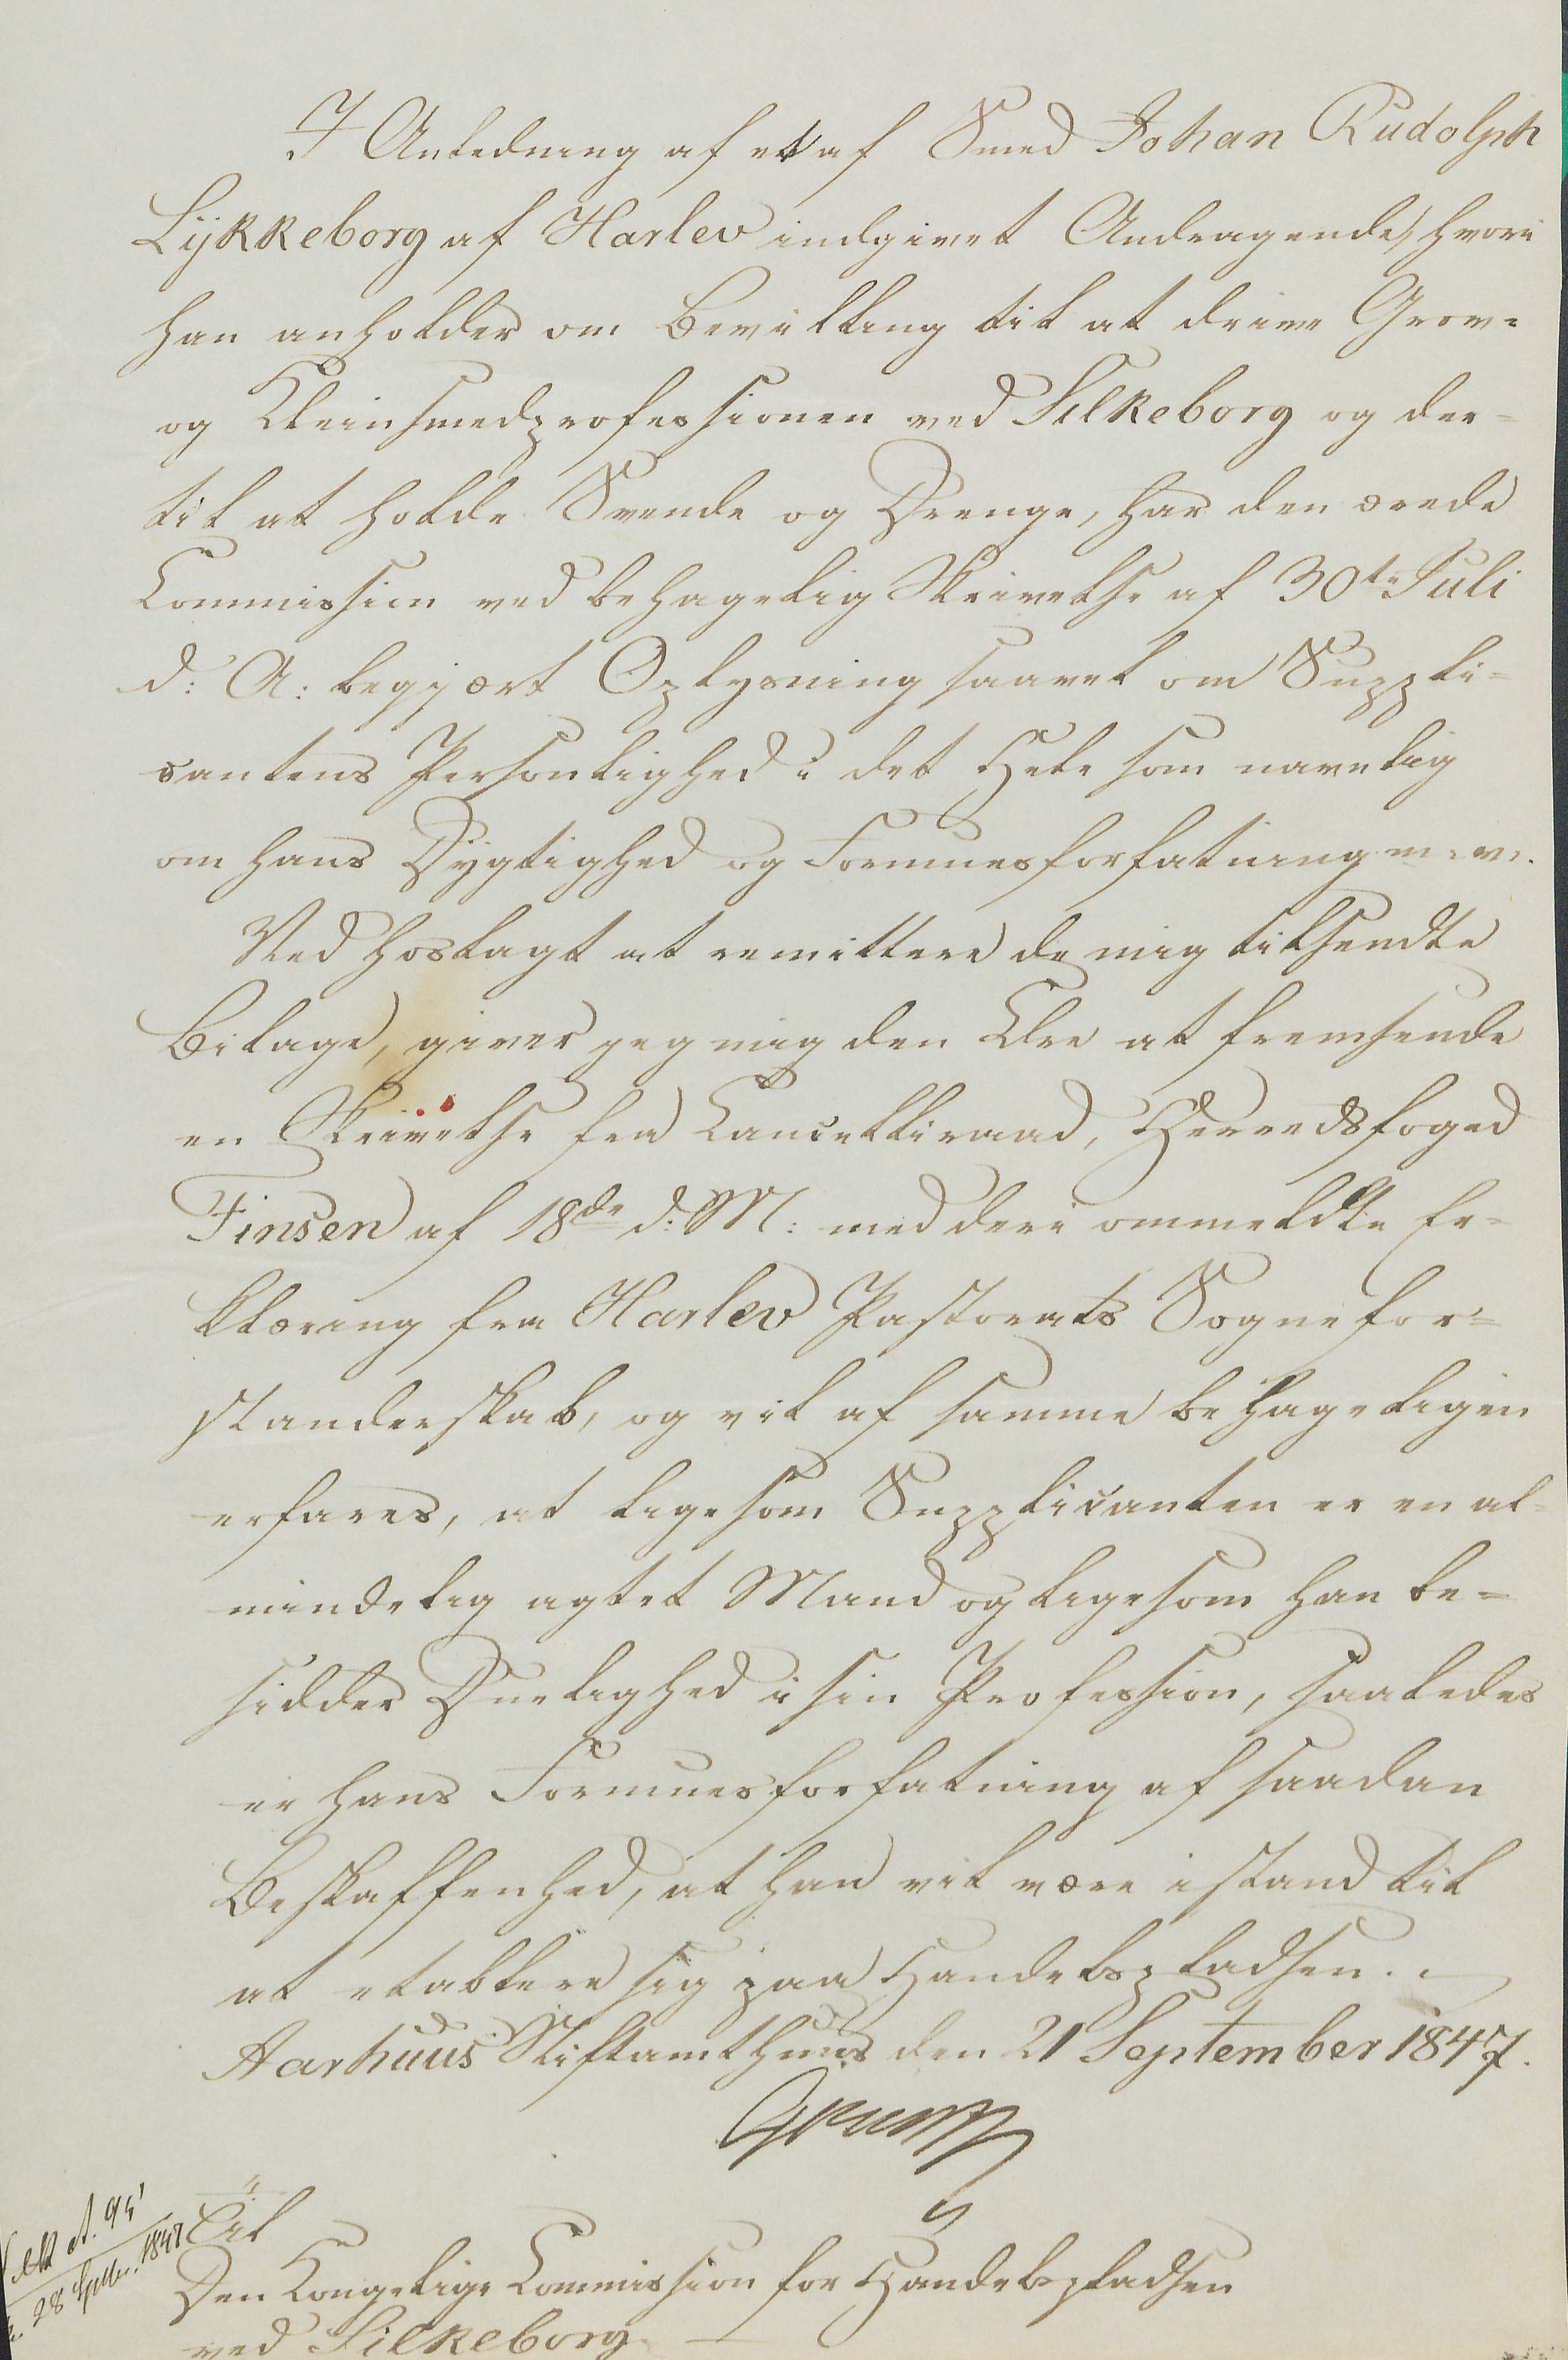 I Anledning af et af Smed Johan Rudolph
Lÿkkeborg af Harlev indgivet Andragende, hvori
han anholder om Bevilling til at drive Grov-
og Kleinsmedprofessionen ved Silkeborg og der-
til at holde Svende og Drenge, har den ærede
Commission ved behagelig Skrivelse af 30te Juli
d: A: begjært Oplysning saavel om Suppli-
cantens Personlighed i det Hele som navnlig
om hans Dygtighed og Formuesforfatning m. v.
Ved hoslagt at remittere de mig tilsendte
Bilage, giver jeg mig den Ære at fremsende
en Skrivelse fra Cancelliraad, Herredsfoged
Finsen af 18de d: M: med deri ommeldte Er-
klæring fra Harlev Pastorats Sognefor-
standerskab, og vil af samme behageligen
erfares, at ligesom Supplicanten er en al-
mindelig agtet Mand og ligesom han be-
sidder Duelighed i sin Profession, saaledes
er hans Formuesforfatning af saadan
Beskaffenhed, at han vil være istand til
at etablere sig paa Handelspladsen.
Aarhuus Stiftamthuus den 21 September 1847.
Til
Den Kongelige Commission for Handelspladsen
ved Silkeborg.
28 Septbr. 1847